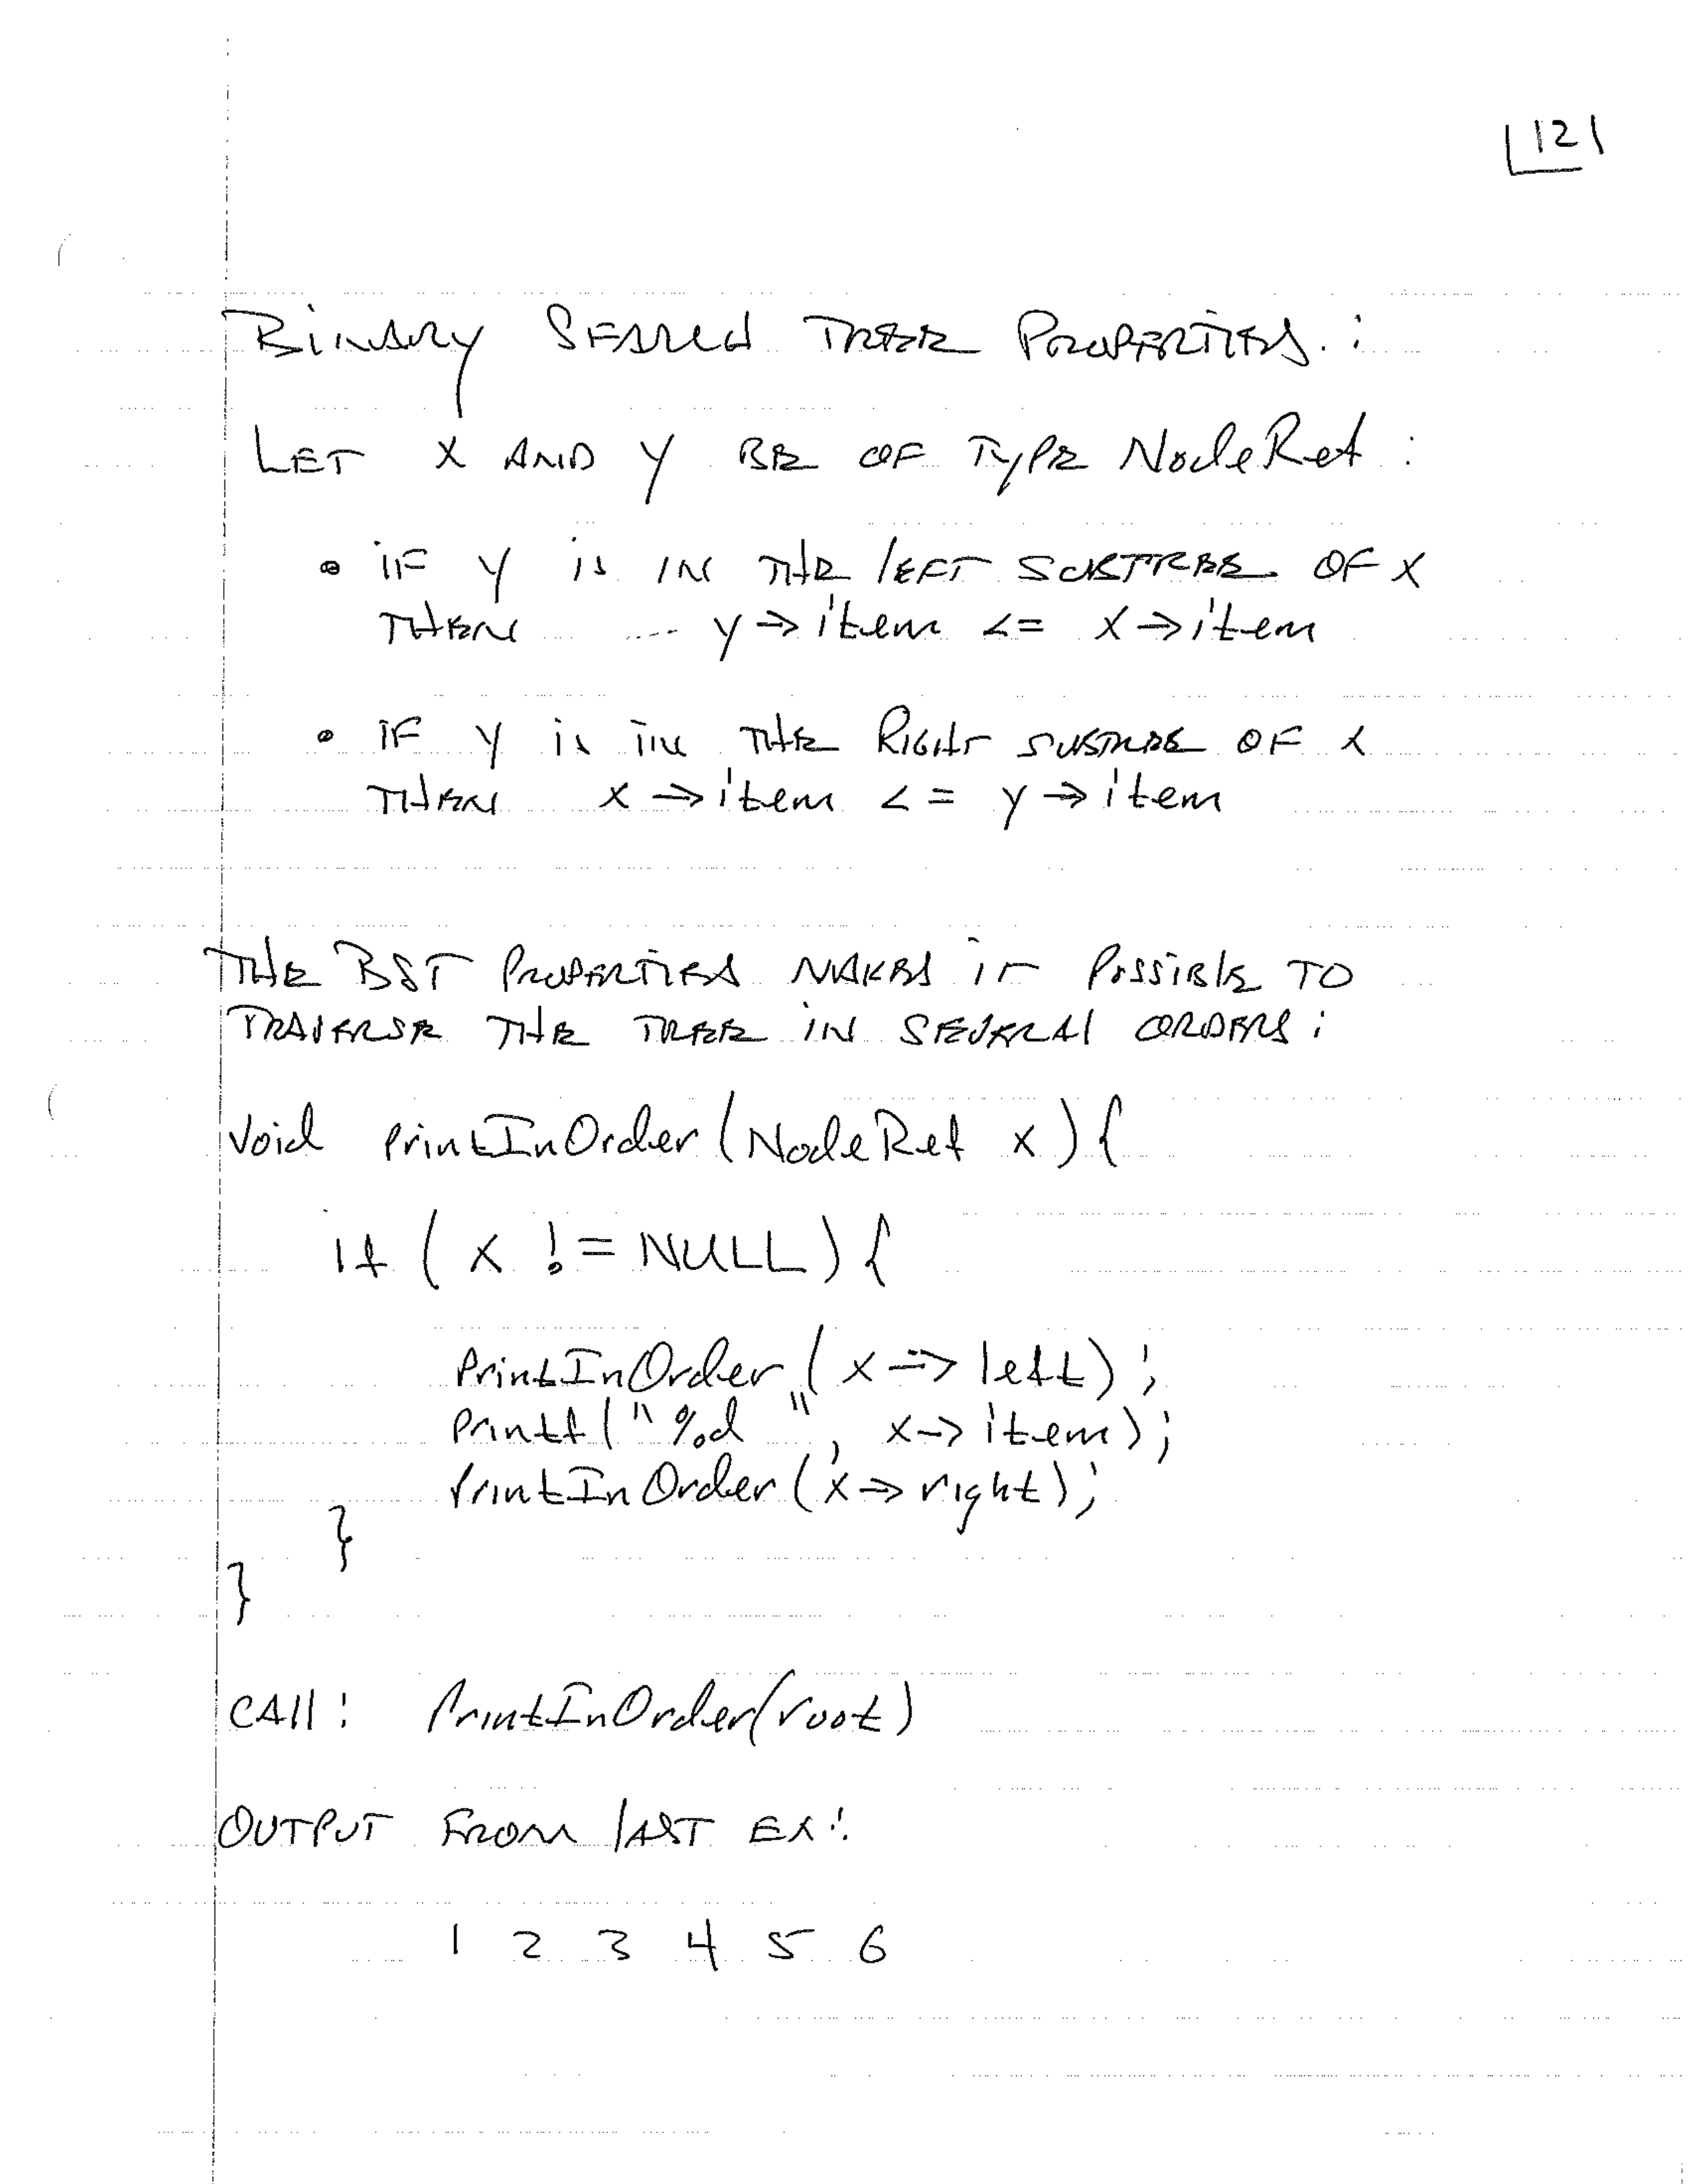 121
BINARY SEARCH TREE PROPERTIES:
LET X AND Y BE OF TYPE NodeRef:
• IF Y is IN THE LEFT SUBTREE OF X
THEN y->item <= x->item
• IF Y is IN THE RIGHT SUBTREE OF X
THEN x->item <= y->item
THE BST PROPERTIES MAKES IT POSSIBLE TO
TRAVERSE THE TREE IN SEVERAL ORDERS:
void printInOrder(NodeRef x){
if ( x != NULL){
printInOrder(x->left);
printf("%d ", x->item);
printInOrder(x->right);
}
}
CALL: printInOrder(root)
OUTPUT FROM LAST EX:
1 2 3 4 5 6